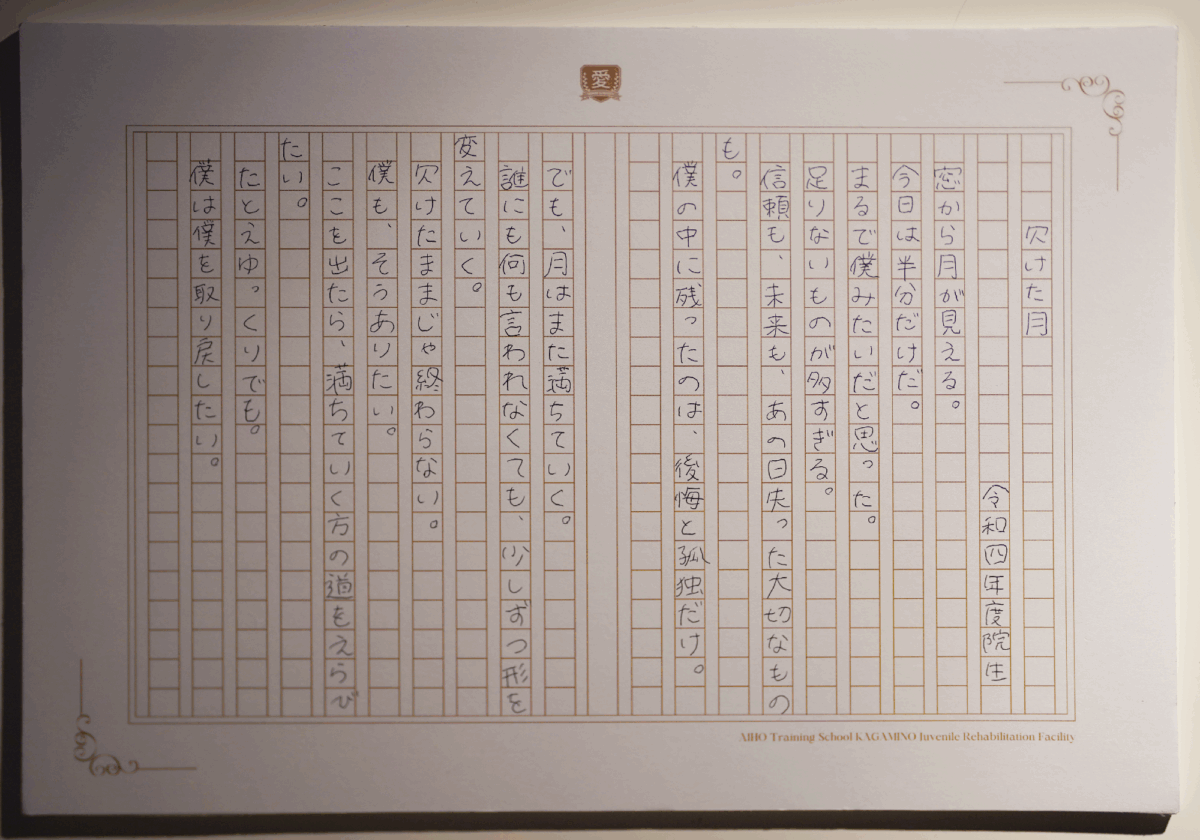 愛
欠けた月
令和四年度院生
窓から月が見える。
今日は半分だけだ。
まるで僕みたいだと思った。
足りないものが多すぎる。
信頼も、未来も、あの日失った大切なもの
も。
僕の中に残ったのは、後悔と孤独だけ。
でも、月はまた満ちていく。
誰にも何も言われなくても、少しずつ形を
変えていく。
欠けたままじゃ終わらない。
僕も、そうありたい。
ここを出たら、満ちていく方の道をえらび
たい。
たとえゆっくりでも。
僕は僕を取り戻したい。
AIHO Training School KAGAMINO Juvenile Rehabilitation Facility